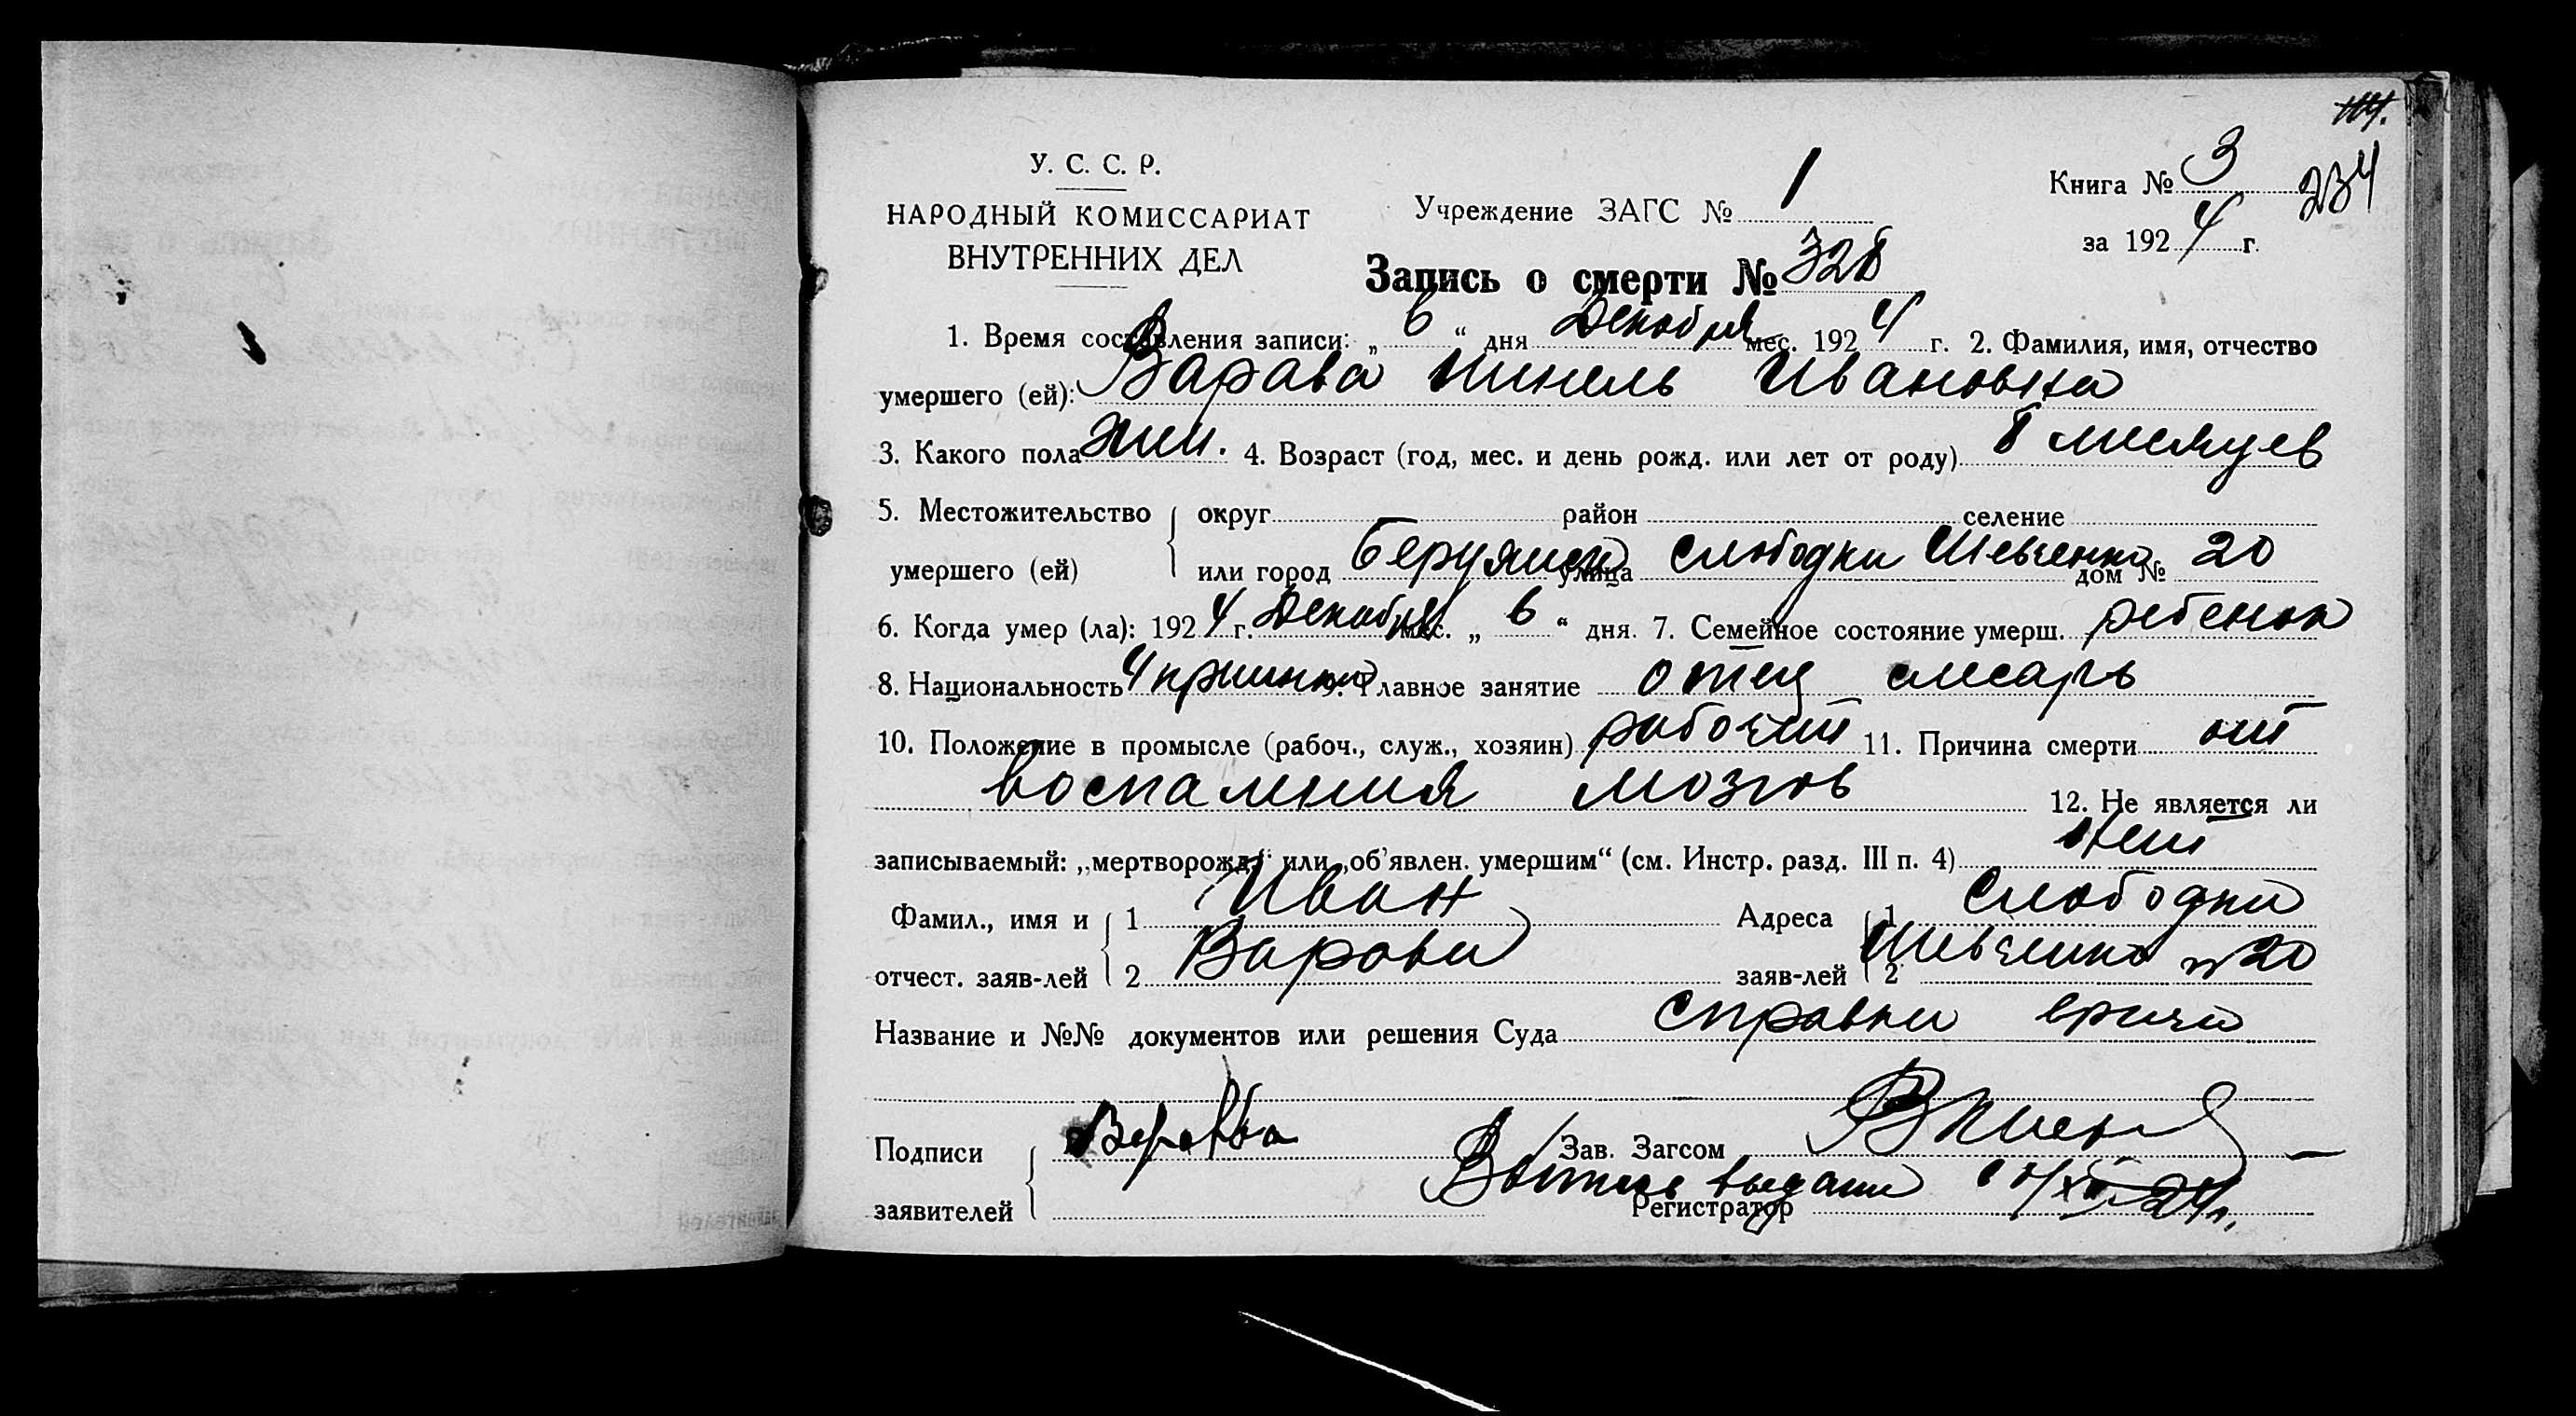 114.
234
У. С. С. Р.
НАРОДНЫЙ КОМИССАРИАТ
ВНУТРЕННИХ ДЕЛ
Учреждение ЗАГС № 1
Книга № 3
за 1924 г.
Запись о смерти № 328
1. Время составления записи: „ 6 “ дня Декабря мес. 1924 г. 2. Фамилия, имя, отчество
умершего (ей): Варава Нинель Ивановна
3. Какого пола жен. 4. Возраст (год, мес. и день рожд. или лет от роду) 8 месяцев
5. Местожительство округ район селение
умершего (ей) или город Бердянск улица Слободки Шевченко дом № 20
6. Когда умер (ла): 1924 г. Декабря мес. „ 6 “ дня. 7. Семейное состояние умерш. ребенок
8. Национальность украинка 9. Главное занятие отец слесарь
10. Положение в промысле (рабоч., служ., хозяин) рабочий 11. Причина смерти от
воспаления мозгов 12. Не является ли
записываемый: „мертворожд.“ или „об’явлен. умершим“ (см. Инстр. разд. III п. 4) Нет
Фамил., имя и 1 Иван Адреса 1 Слободки
отчест. заяв-лей 2 Варава заяв-лей 2 Шевченко № 20
Название и №№ документов или решения Суда справки врача
Подписи Варавва Зав. Загсом
заявителей Выпись выдана Регистратор